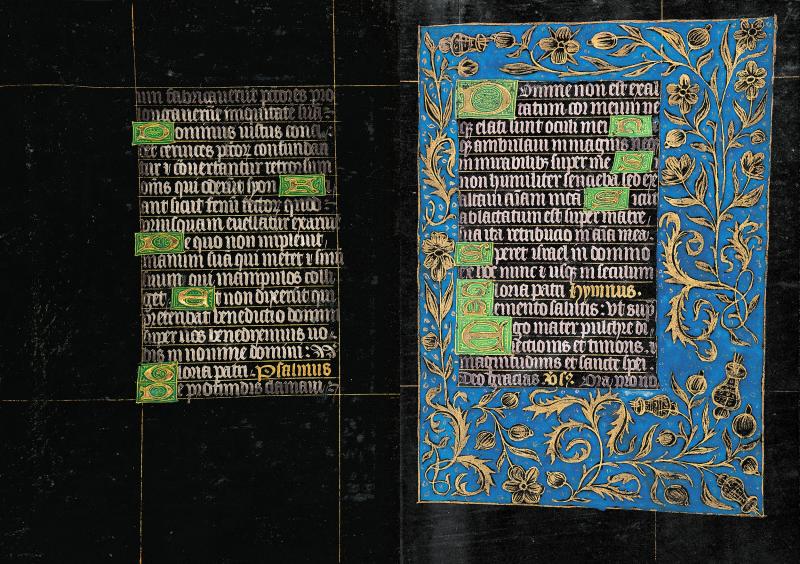 um fabricauerūt pctores pro
longauerūt iniquitatē suā
Dominus iustus conci
det ceruices pctorū confundan
tur ⁊ cōuertantur retrorsum
oms qui oderūt syon Fi
ant sicut fenū tectorū quod
priusquam euellatur exaruit
De quo non impleuit
manum suā qui metet ⁊ sinū
suum qui manipulos colli
get Et non dixerūt qui
preteribāt benedictio domini
super uos benediximus uo
bis in nomine domini:
Gloria patri. Psalmus
De profundis clamaui
Domine non est exal
tatum cor meum ne
qꝫ elati sunt oculi mei N
qꝫ ambulaui in magnis neqꝫ
in mirabilibꝫ super me S
non humiliter sentiebā sed ex
altaui aīam meā S icut
ablactatum est super matre
sua ita retribucio in aīa mea
Speret israel in domino
ex hoc nunc ⁊ usqꝫ in seculum
Gloria patri Hymnus.
Memento salutis: Ut sup
Ego mater pulchre di
lectionis et timoris ⁊
magnitudinis et sancte spei
Deo gracias Vs. Ora pro nob